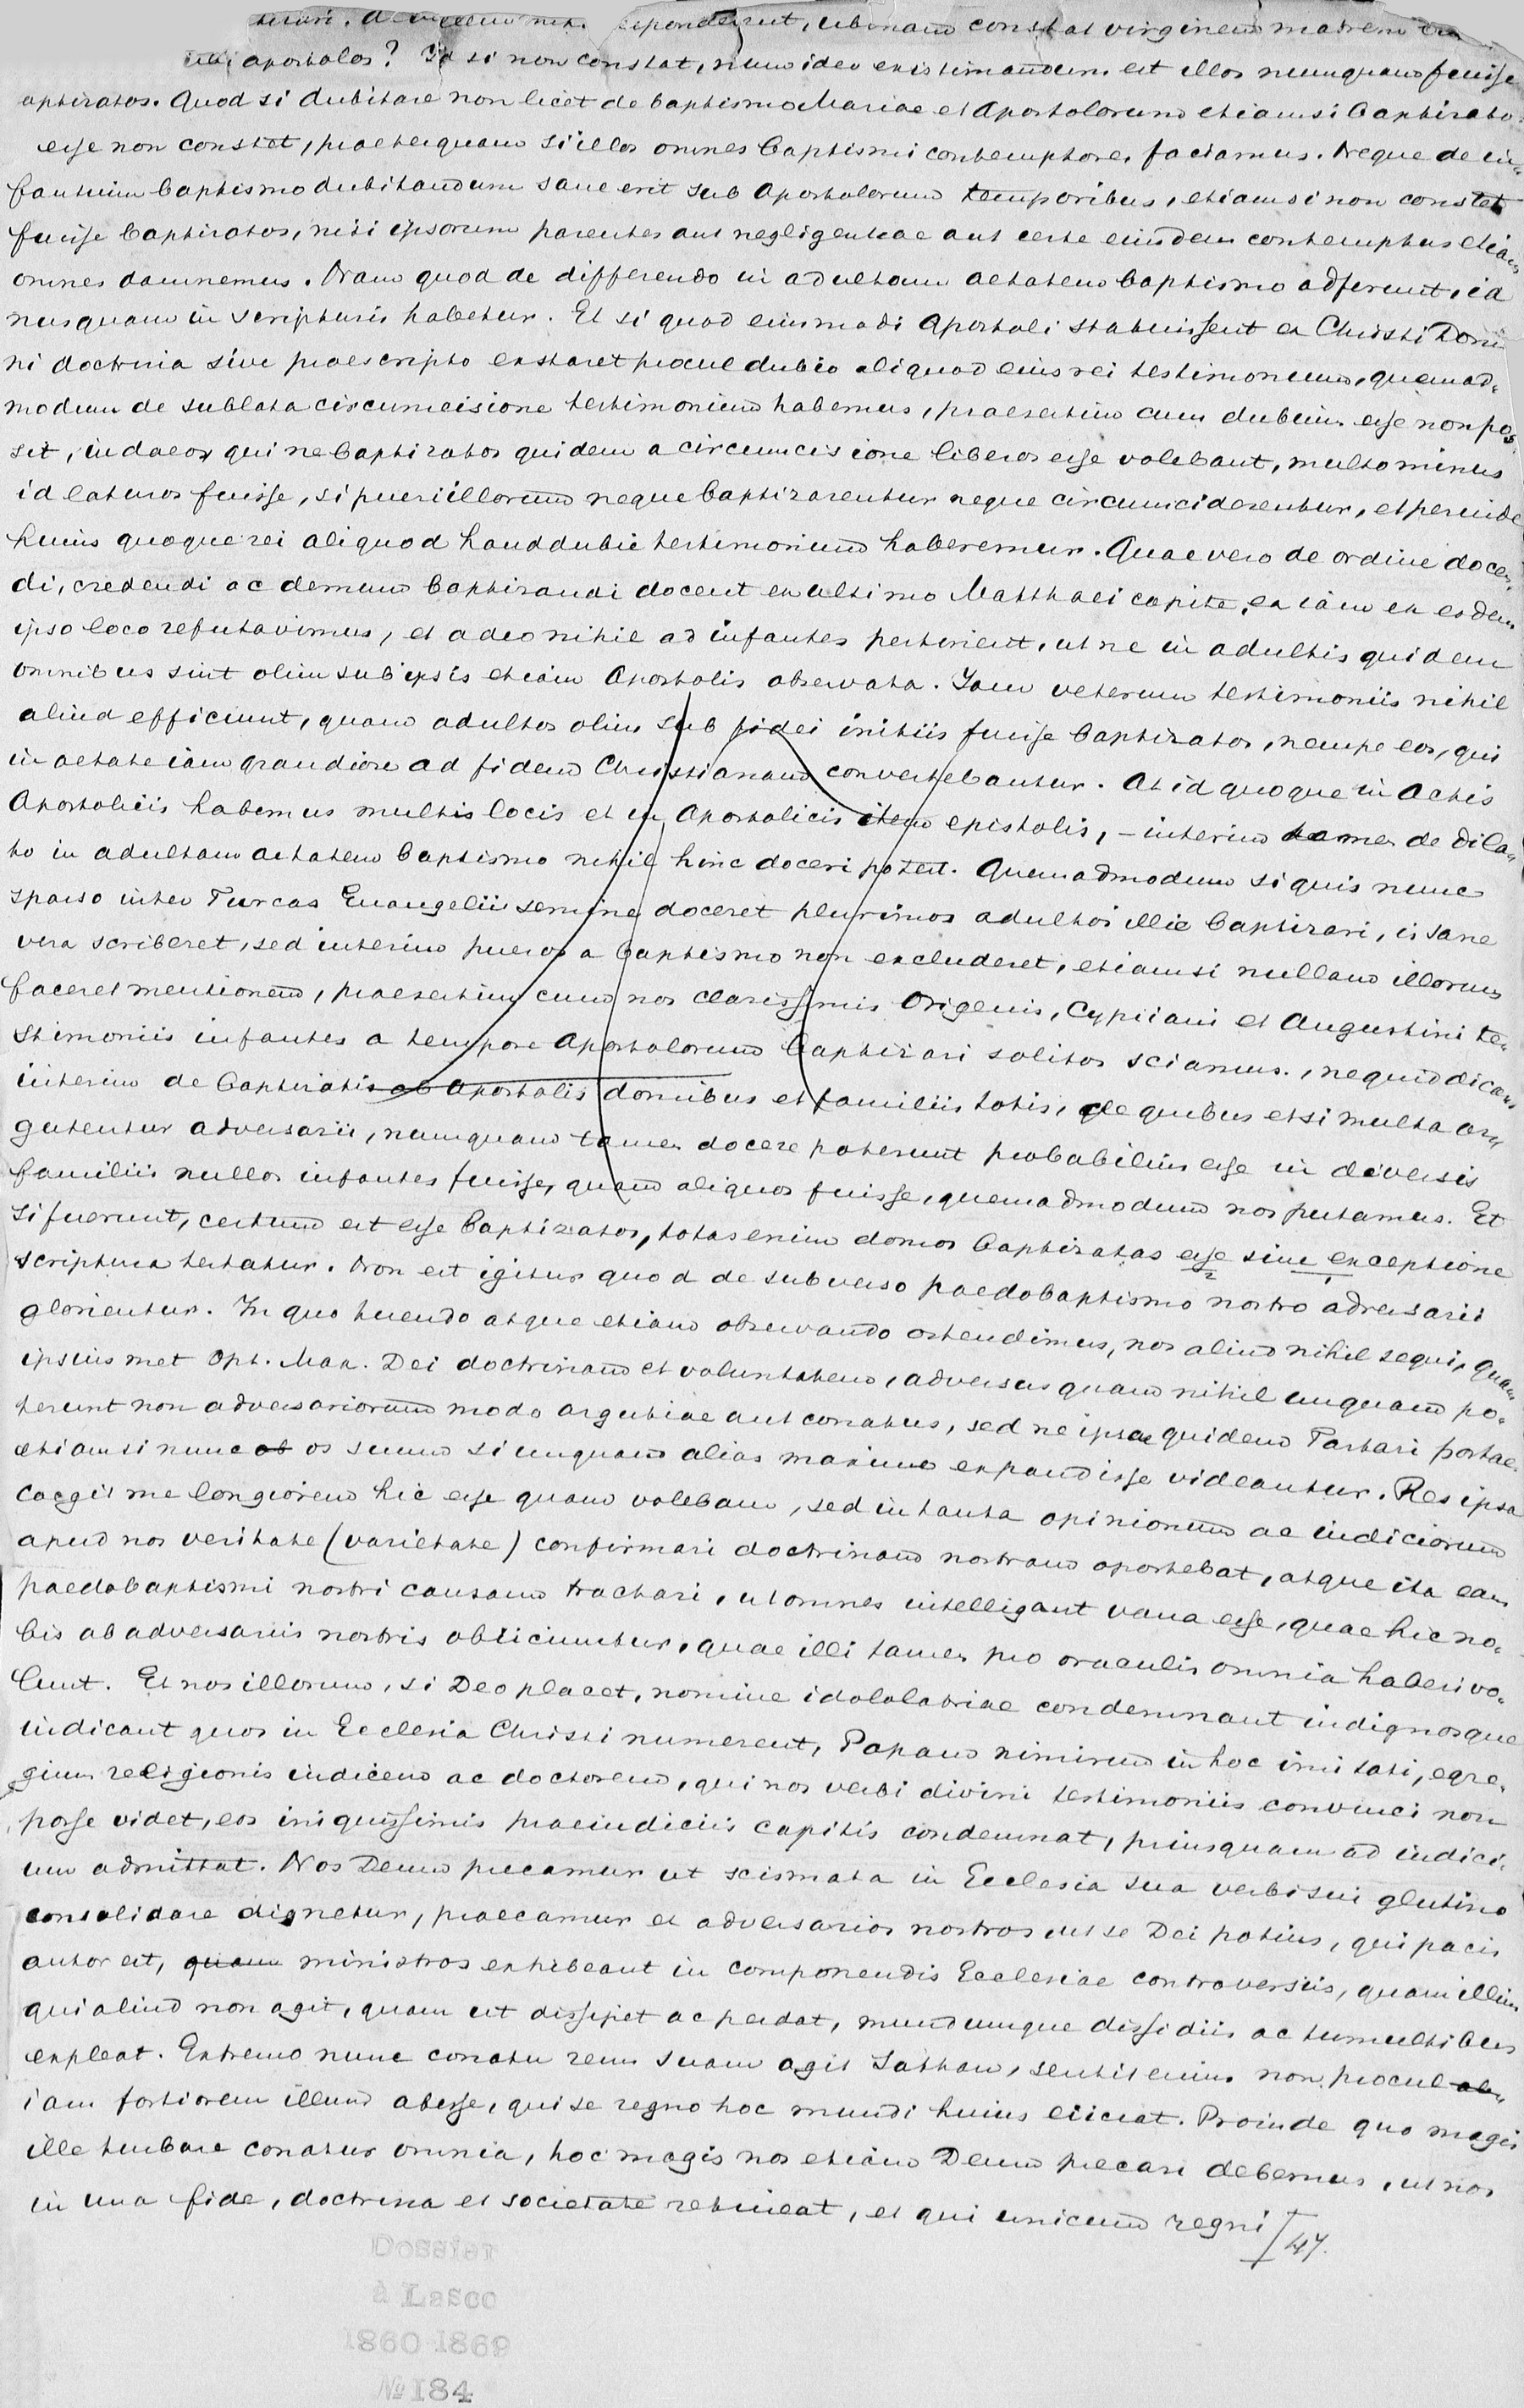 respondeant, ubinam constat virginem matrem
apostolos? Id si non constat, num ideo existimandum est illos nunquam fuisse
aptizatos. Quod si dubitare non licet de baptismo Mariae et Apostolorum etiamsi baptizato
esse non constet, praeterquam si illos omnes baptismi contemptores faciamus. Neque de in-
fantium baptismo dubitandum sane erit sub Apostolorum temporibus, etiamsi non constet
fuisse baptizatos, nisi ipsorum parentes aut negligentiae aut certe eiusdem contemptus etiam
omnes damnemus. Nam quod de differendo in adultam aetatem baptismo adferunt, id
nusquam in scripturis habetur. Et si quod eiusmodi Apostoli statuissent ex Christi Domi
ni doctrina sive praescripto exstaret procul dubio aliquod eius rei testimonium, quemad-
modum de sublata circumcisione testimonium habemus, praesertim cum dubium esse non pos
sit, iudaeos qui ne baptizatos quidem a circumcisione liberos esse volebant, multo minus
id laturos fuisse, si pueri illorum neque baptizarentur neque circumciderentur, et perinde
huius quoque rei aliquod haud dubie testimonium haberemus. Quae vero de ordine docen-
di, credendi ac demum baptizandi docent ex ultimo Matthaei capite, ea iam ex eodem
ipso loco refutavimus, et adeo nihil ad infantes pertinent, ut ne in adultis quidem
omnibus sint olim sub ipsis etiam Apostolis observata. Iam veterum testimoniis nihil
aliud efficiunt, quam adultos olim sub fidei initiis fuisse baptizatos, nempe eos, qui
in aetate iam grandiore ad fidem Christianam convertebantur. At id quoque in Actis
Apostolicis habemus multis locis et in Apostolicis item epistolis, – interim tamen de dila-
to in adultam aetatem baptismo nihil hinc doceri potest. Quemadmodum si quis nunc
sparso inter Turcas Euangelii semine doceret plurimos adultos illic baptizari, is sane
vera scriberet, sed interim pueros a baptismo non excluderet, etiamsi nullam illorum
faceret mentionem, praesertim cum nos clarissimis Origenis, Cypriani et Augustini te-
stimoniis infantes a tempore Apostolorum baptizari solitos sciamus, nequid dicam
interim de baptizatis ab Apostolis domibus et familiis totis, de quibus etsi multa ar-
gutentur adversarii, nunquam tamen docere poterunt probabilius esse in diversis
familiis nullos infantes fuisse, quam aliquos fuisse, quemadmodum nos putamus. Et
si fuerunt, certum est esse baptizatos, totas enim domos baptizatas esse sine exceptione
scriptura testatur. Non est igitur quod de subverso paedobaptismo nostro adversarii
glorientur. In quo tuendo atque etiam observando ostendimus, nos aliud nihil sequi, quam
ipsius met Opt. Max. Dei doctrinam et voluntatem, adversus quam nihil unquam po-
terunt non adversariorum modo argutiae aut conatus, sed ne ipsae quidem Tartari portae
etiamsi nunc ob os suum si unquam alias maxime expandisse videantur. Res ipsa
coegit me longiorem hic esse quam volebam, sed in tanta opinionum ac iudiciorum
apud nos veritate (varietate) confirmari doctrinam nostram oportebat, atque ita eam
paedobaptismi nostri causam tractari, ut omnes intelligant vana esse, quae hic no-
bis ab adversariis nostris obiiciuntur, quae illi tamen pro oraculis omnia haberi vo-
lunt. Et nos illorum, si Deo placet, nomine idololatriae condemnant indignosque
iudicant quos in Ecclesia Christi numerent, Papam nimirum in hoc imitati, egre-
gium religionis iudicem ac doctorem, qui nos verbi divini testimoniis convinci non
posse videt, eos iniquissimis praeiudiciis capitis condemnat, priusquam ad iudici-
um admittat. Nos Deum precamur ut scismata in Ecclesia sua verbi sui glutino
consolidare dignetur, praecamur et adversarios nostros ut se Dei potius, qui pacis
autor est, quam ministros exhibeant in componendis Ecclesiae controversiis, quam illius
qui aliud non agit, quam ut dissipet ac perdat, mundumque dissidiis ac tumultibus
expleat. Extremo nunc conatu rem suam agit Sathan, sentit enim non procul abe
iam fortiorem illum abesse, qui se regno hoc mundi huius eiiciat. Proinde quo magis
ille turbare conatur omnia, hoc magis nos etiam Deum precari debemus, ut nos
in una fide, doctrina et societate retineat, et qui unicum regni 47.
Dossier
à Lasco
1860 1869
№ 184